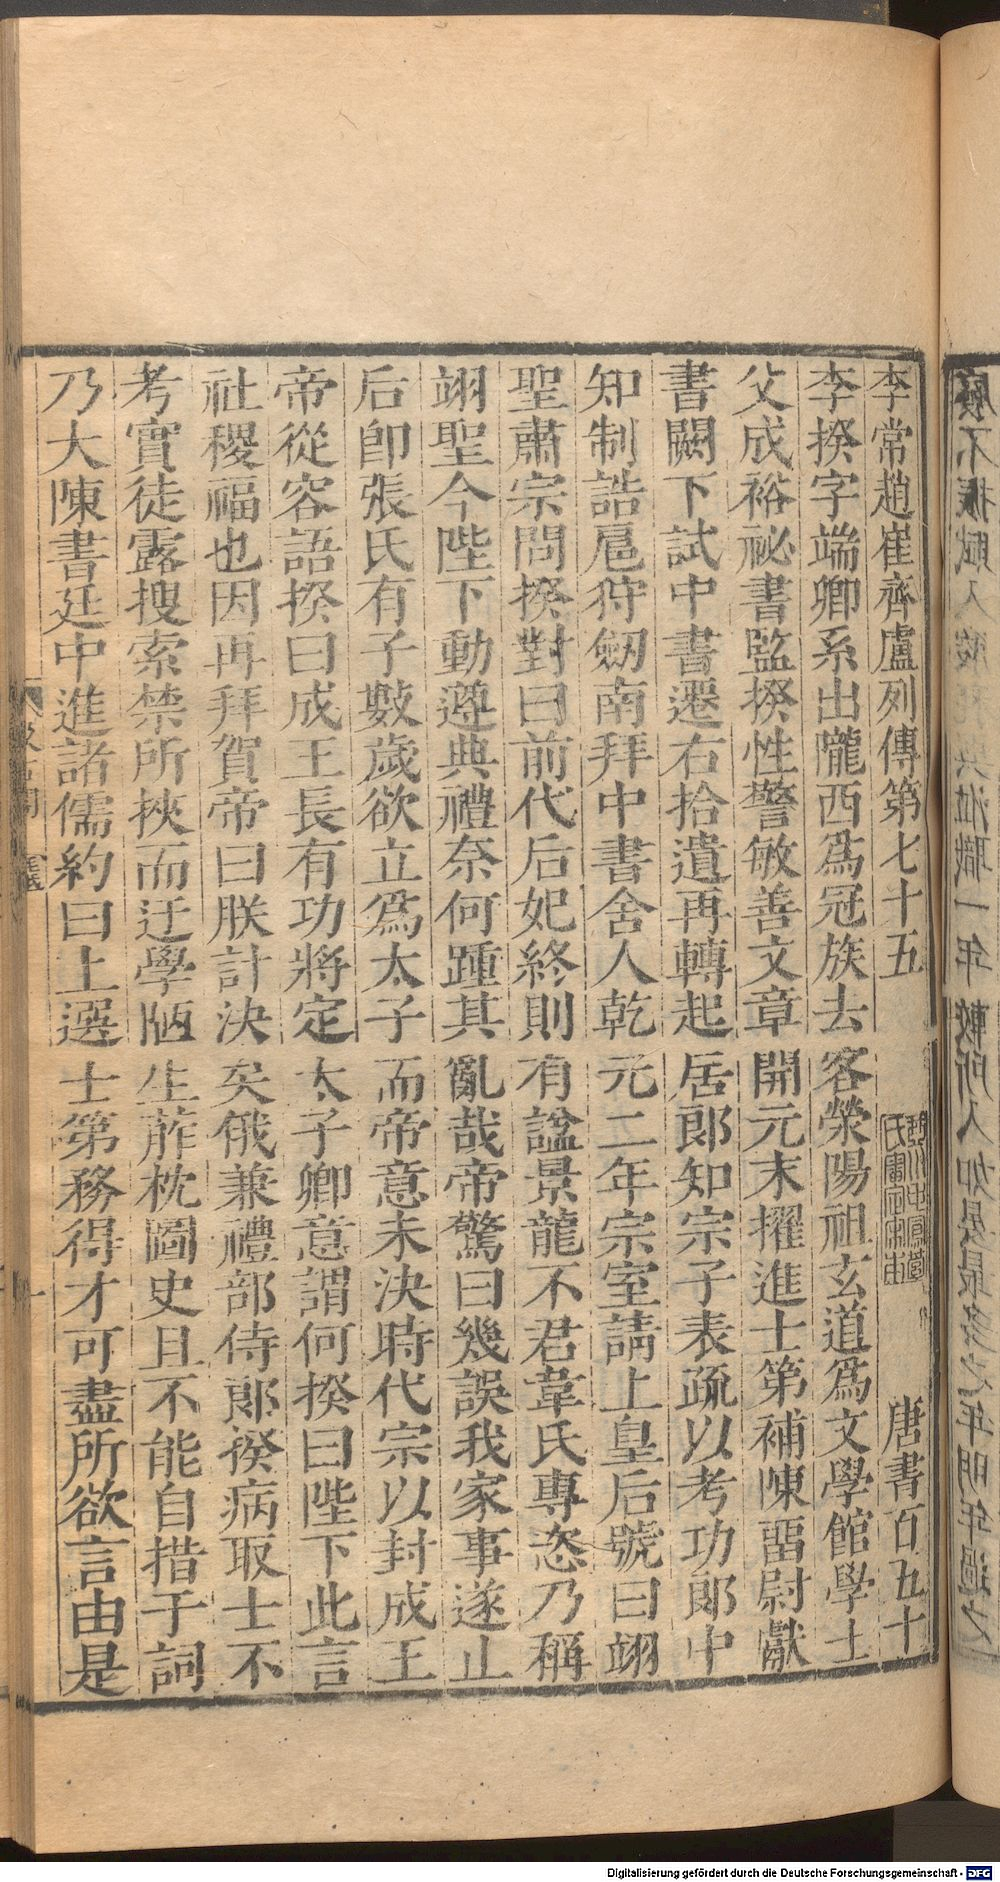 李常趙崔齊盧列傳第七十五 唐書百五十
李揆字端卿系出隴西爲冠族去客滎陽祖玄道爲文學館學士
父成裕祕書監揆性警敏善文章開元末擢進士第補陳畱尉獻
書闕下試中書遷右拾遺再轉起居郎知宗子表疏以考功郎中
知制誥扈狩劒南拜中書舍人乾元二年宗室請上皇后號曰翊
聖肅宗問揆對曰前代后妃終則有諡景龍不君韋氏專恣乃稱
翊聖今陛下動遵典禮奈何踵其亂哉帝驚曰幾誤我家事遂止
后卽張氏有子數歲欲立爲太子而帝意未決時代宗以封成王
帝從容語揆曰成王長有功將定太子卿意謂何揆曰陛下此言
社稷福也因再拜賀帝曰朕計決矣俄兼禮部侍郎揆病取士不
考實徒露搜索禁所挾而迂學陋生葄枕圖史且不能自措于詞
乃大陳書廷中進諸儒約曰上選士第務得才可盡所欲言由是
Digitalisierung gefördert durch die Deutsche Forschungsgemeinschaft - DFG